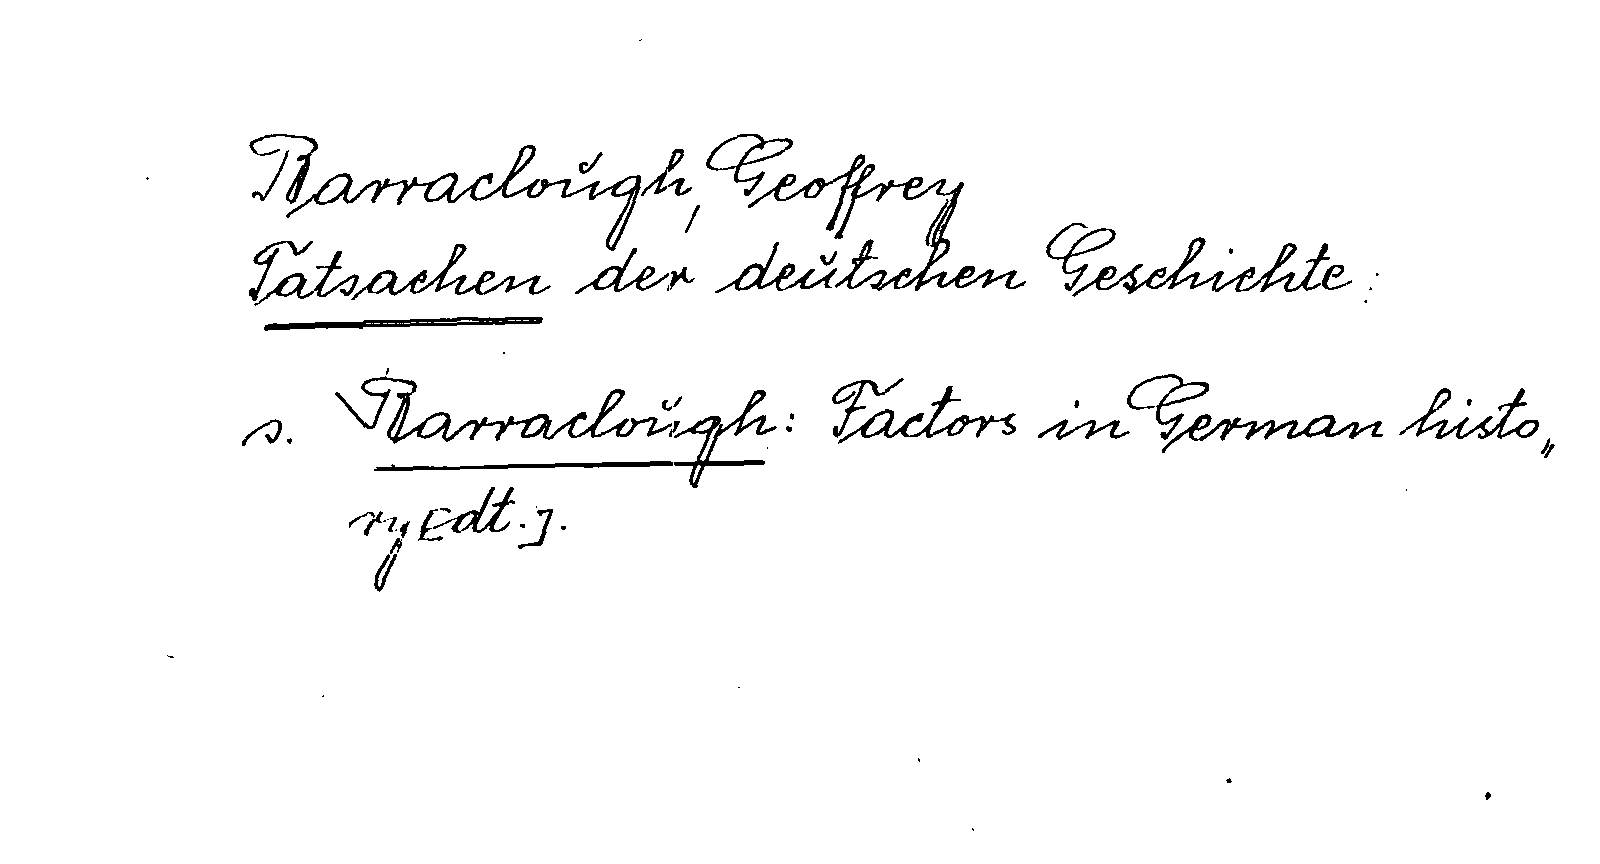 Barraclough, Geoffrey
Tatsachen der deutschen Geschichte.
s. Barraclough: Factors in German histo„
ry [dt.].